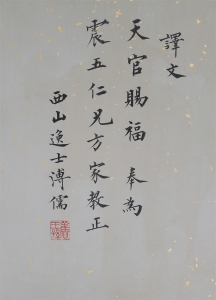 譯文
天官賜福 奉為
震五仁兄方家教正
西山逸士溥儒